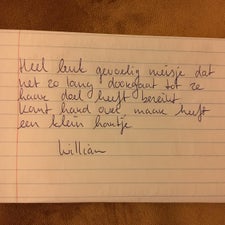 Heel leuk gevoelig meisje dat
net zo lang doorgaat tot ze
haar doel heeft bereikt
Komt hard over maar heeft
een klein hartje
William